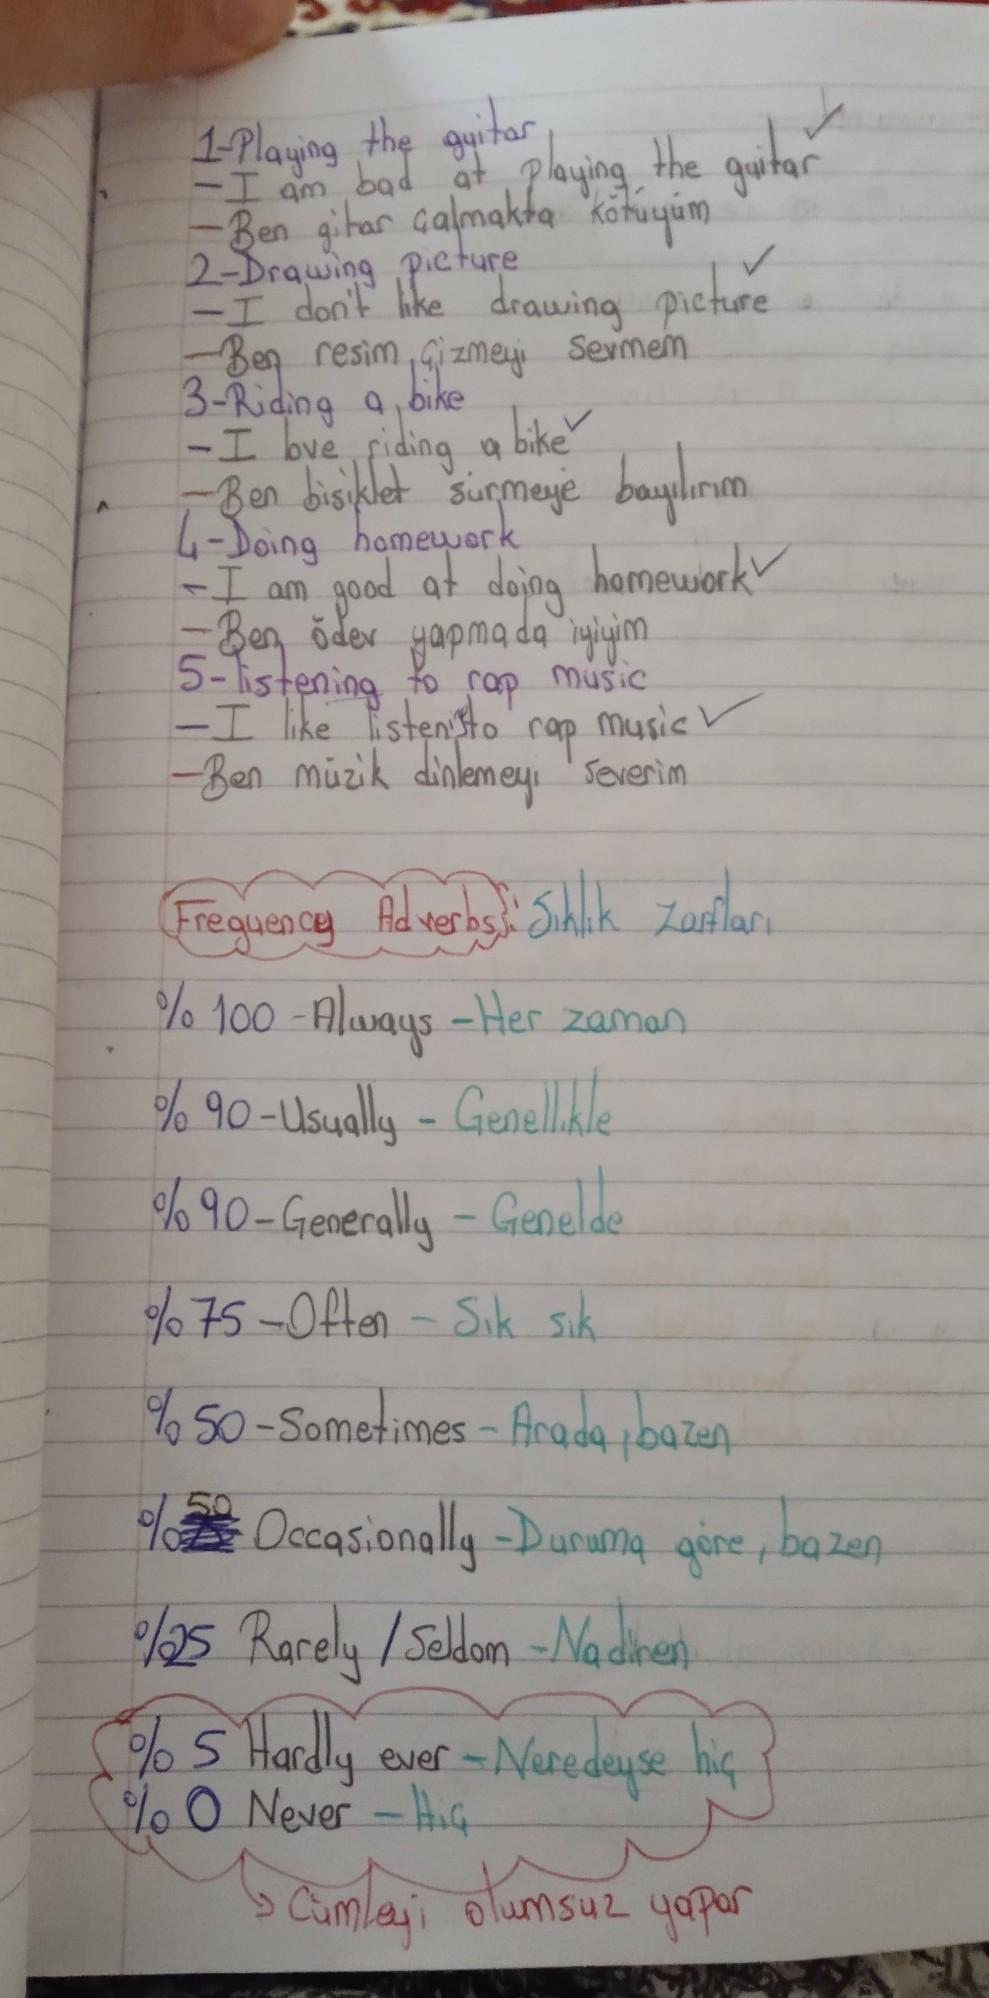 1-Playing the guitar
- I am bad at playing the guitar
- Ben gitar çalmakta kötüyüm
2-Drawing picture
- I don't like drawing picture
- Ben resim çizmeyi sevmem
3-Riding a bike
- I love riding a bike
- Ben bisiklet sürmeye bayılırım
4-Doing homework
- I am good at doing homework
- Ben ödev yapmada iyiyim
5-listening to rap music
- I like to rap music
- Ben müzik dinlemeyi severim
Frequency Adverbs: Sıklık Zarfları
%100 - Always - Her zaman
%90 - Usually - Genellikle
%90 - Generally - Genelde
%75 - Often - Sık sık
%50 - Sometimes - Arada, bazen
%50 Occasionally - Duruma göre, bazen
%25 Rarely / Seldom - Nadiren
%5 Hardly ever - Neredeyse hiç
%0 Never - Hiç
Cümleyi olumsuz yapar